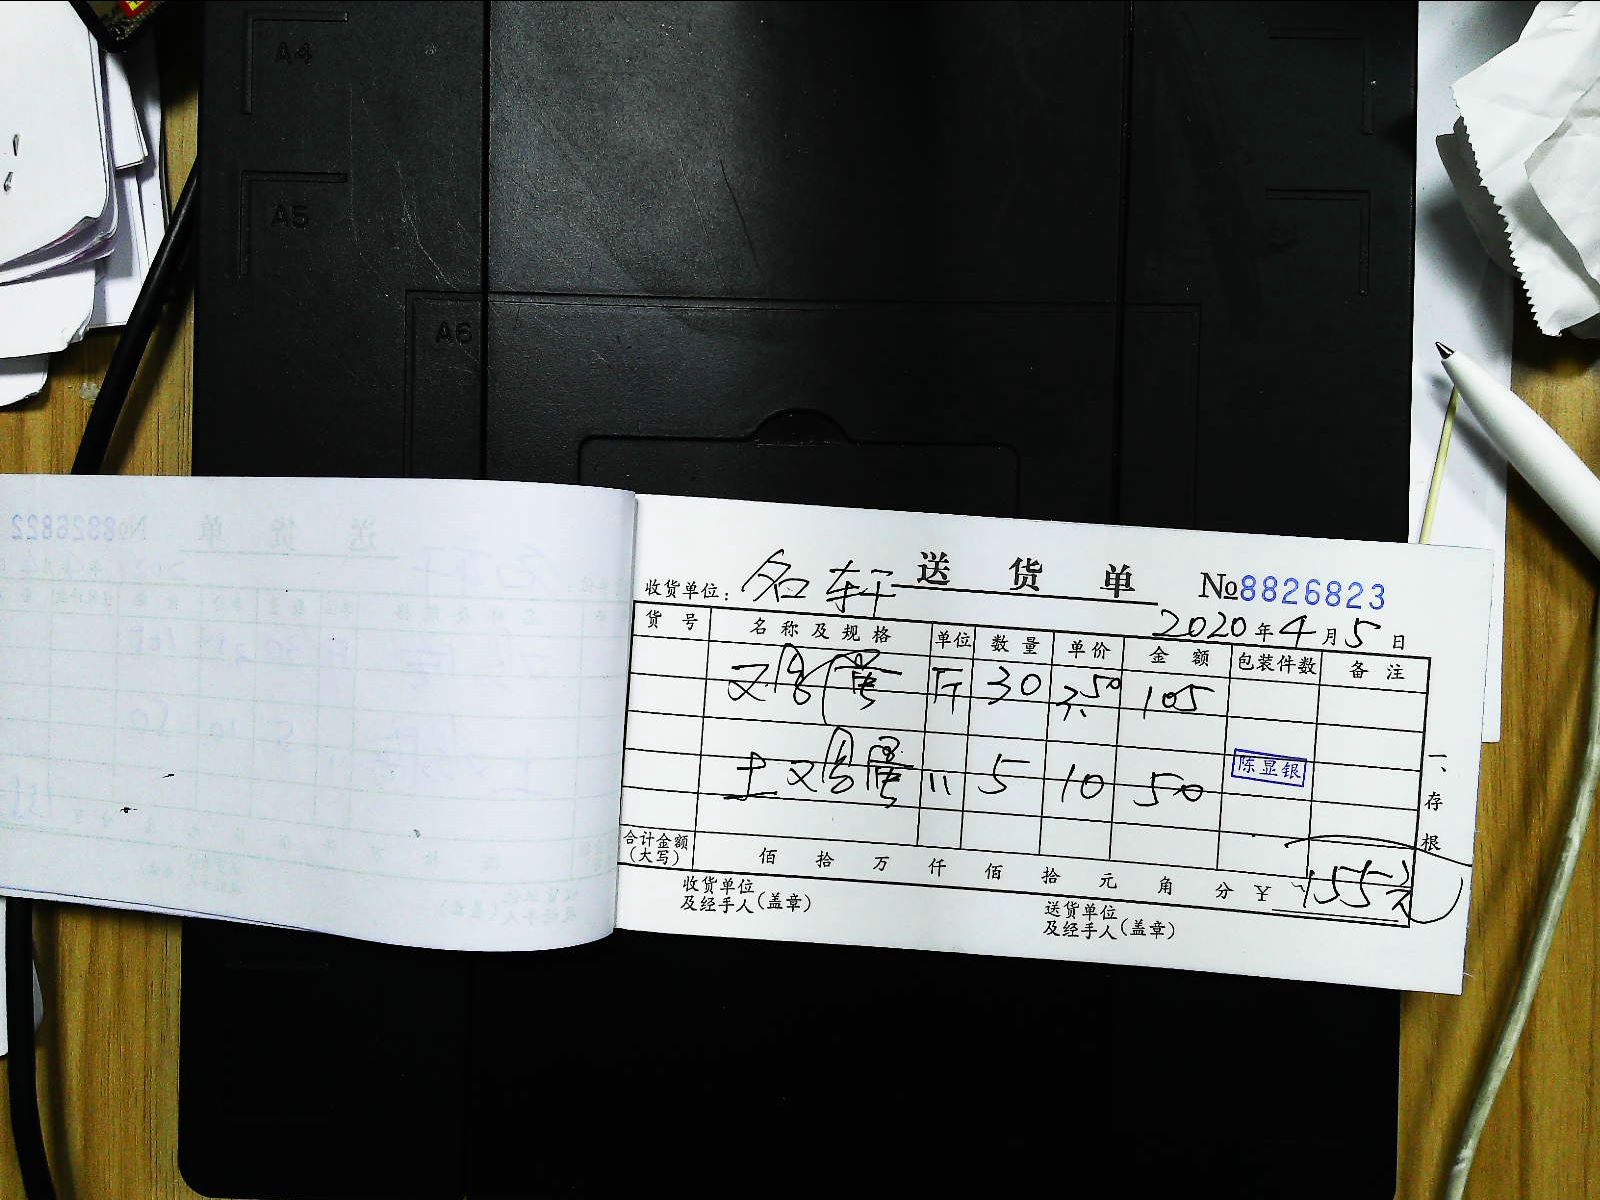 A4
A5
A6
送货单 №8826822
送货单 №8826823
收货单位: 名轩
2020年4月5日
货号 名称及规格 单位 数量 单价 金额 包装件数 备注
又鸟蛋 斤 30 3.50 105
土又鸟蛋 〃 5 10 50
陈显银
合计金额(大写) 佰 拾 万 仟 佰 拾 元 角 分 ¥ 155元
收货单位及经手人(盖章)
送货单位及经手人(盖章)
一、存根